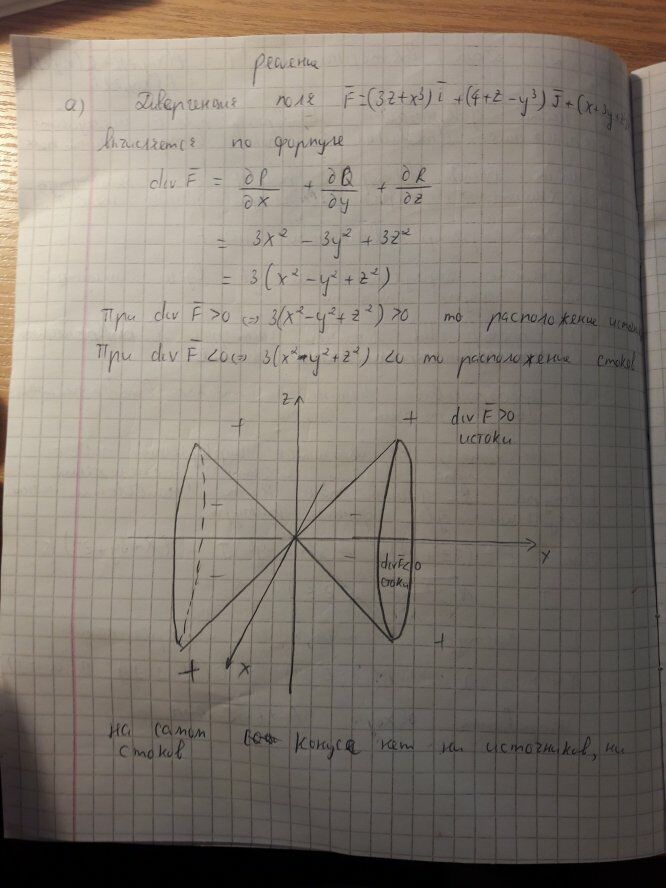 решение
а) Дивергенция поля F̄=(3z+x³) ī +(4+z-y³) j̄+(x+3y+
вычисляется по формуле
div F̄ = ∂P/∂x + ∂Q/∂y + ∂R/∂z
= 3x² - 3y² + 3z²
= 3(x² - y² + z²)
При div F̄ >0 ⇔ 3(x²-y²+z²)>0 то расположение
При div F̄ <0⇔ 3(x²-y²+z²) <0 то расположение стоков
z
+ + div F̄>0
истоки
- -
y
- -
div F̄<0
стоки
+ x +
на самом конуса нет ни источников, ни
стоков